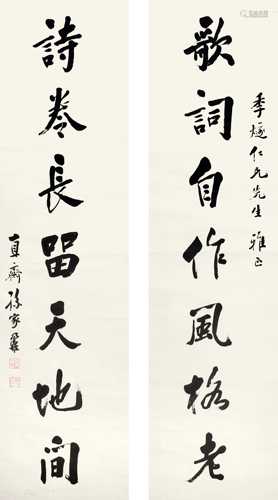 季燧仁兄先生 雅正
歌詞自作風格老
詩卷長留天地間
直齋